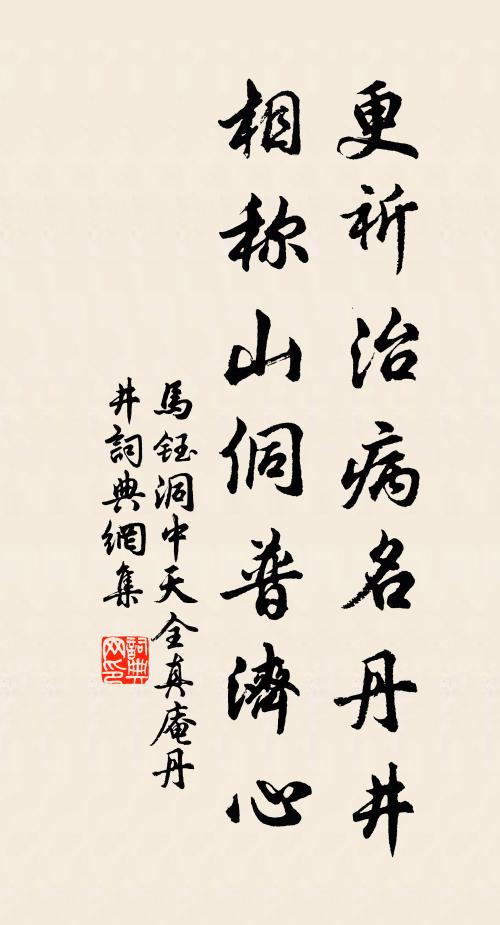 更祈治病名丹井
相称山侗普濟心
馬鈺洞中天全真庵丹
井詞典網集
詞典網印